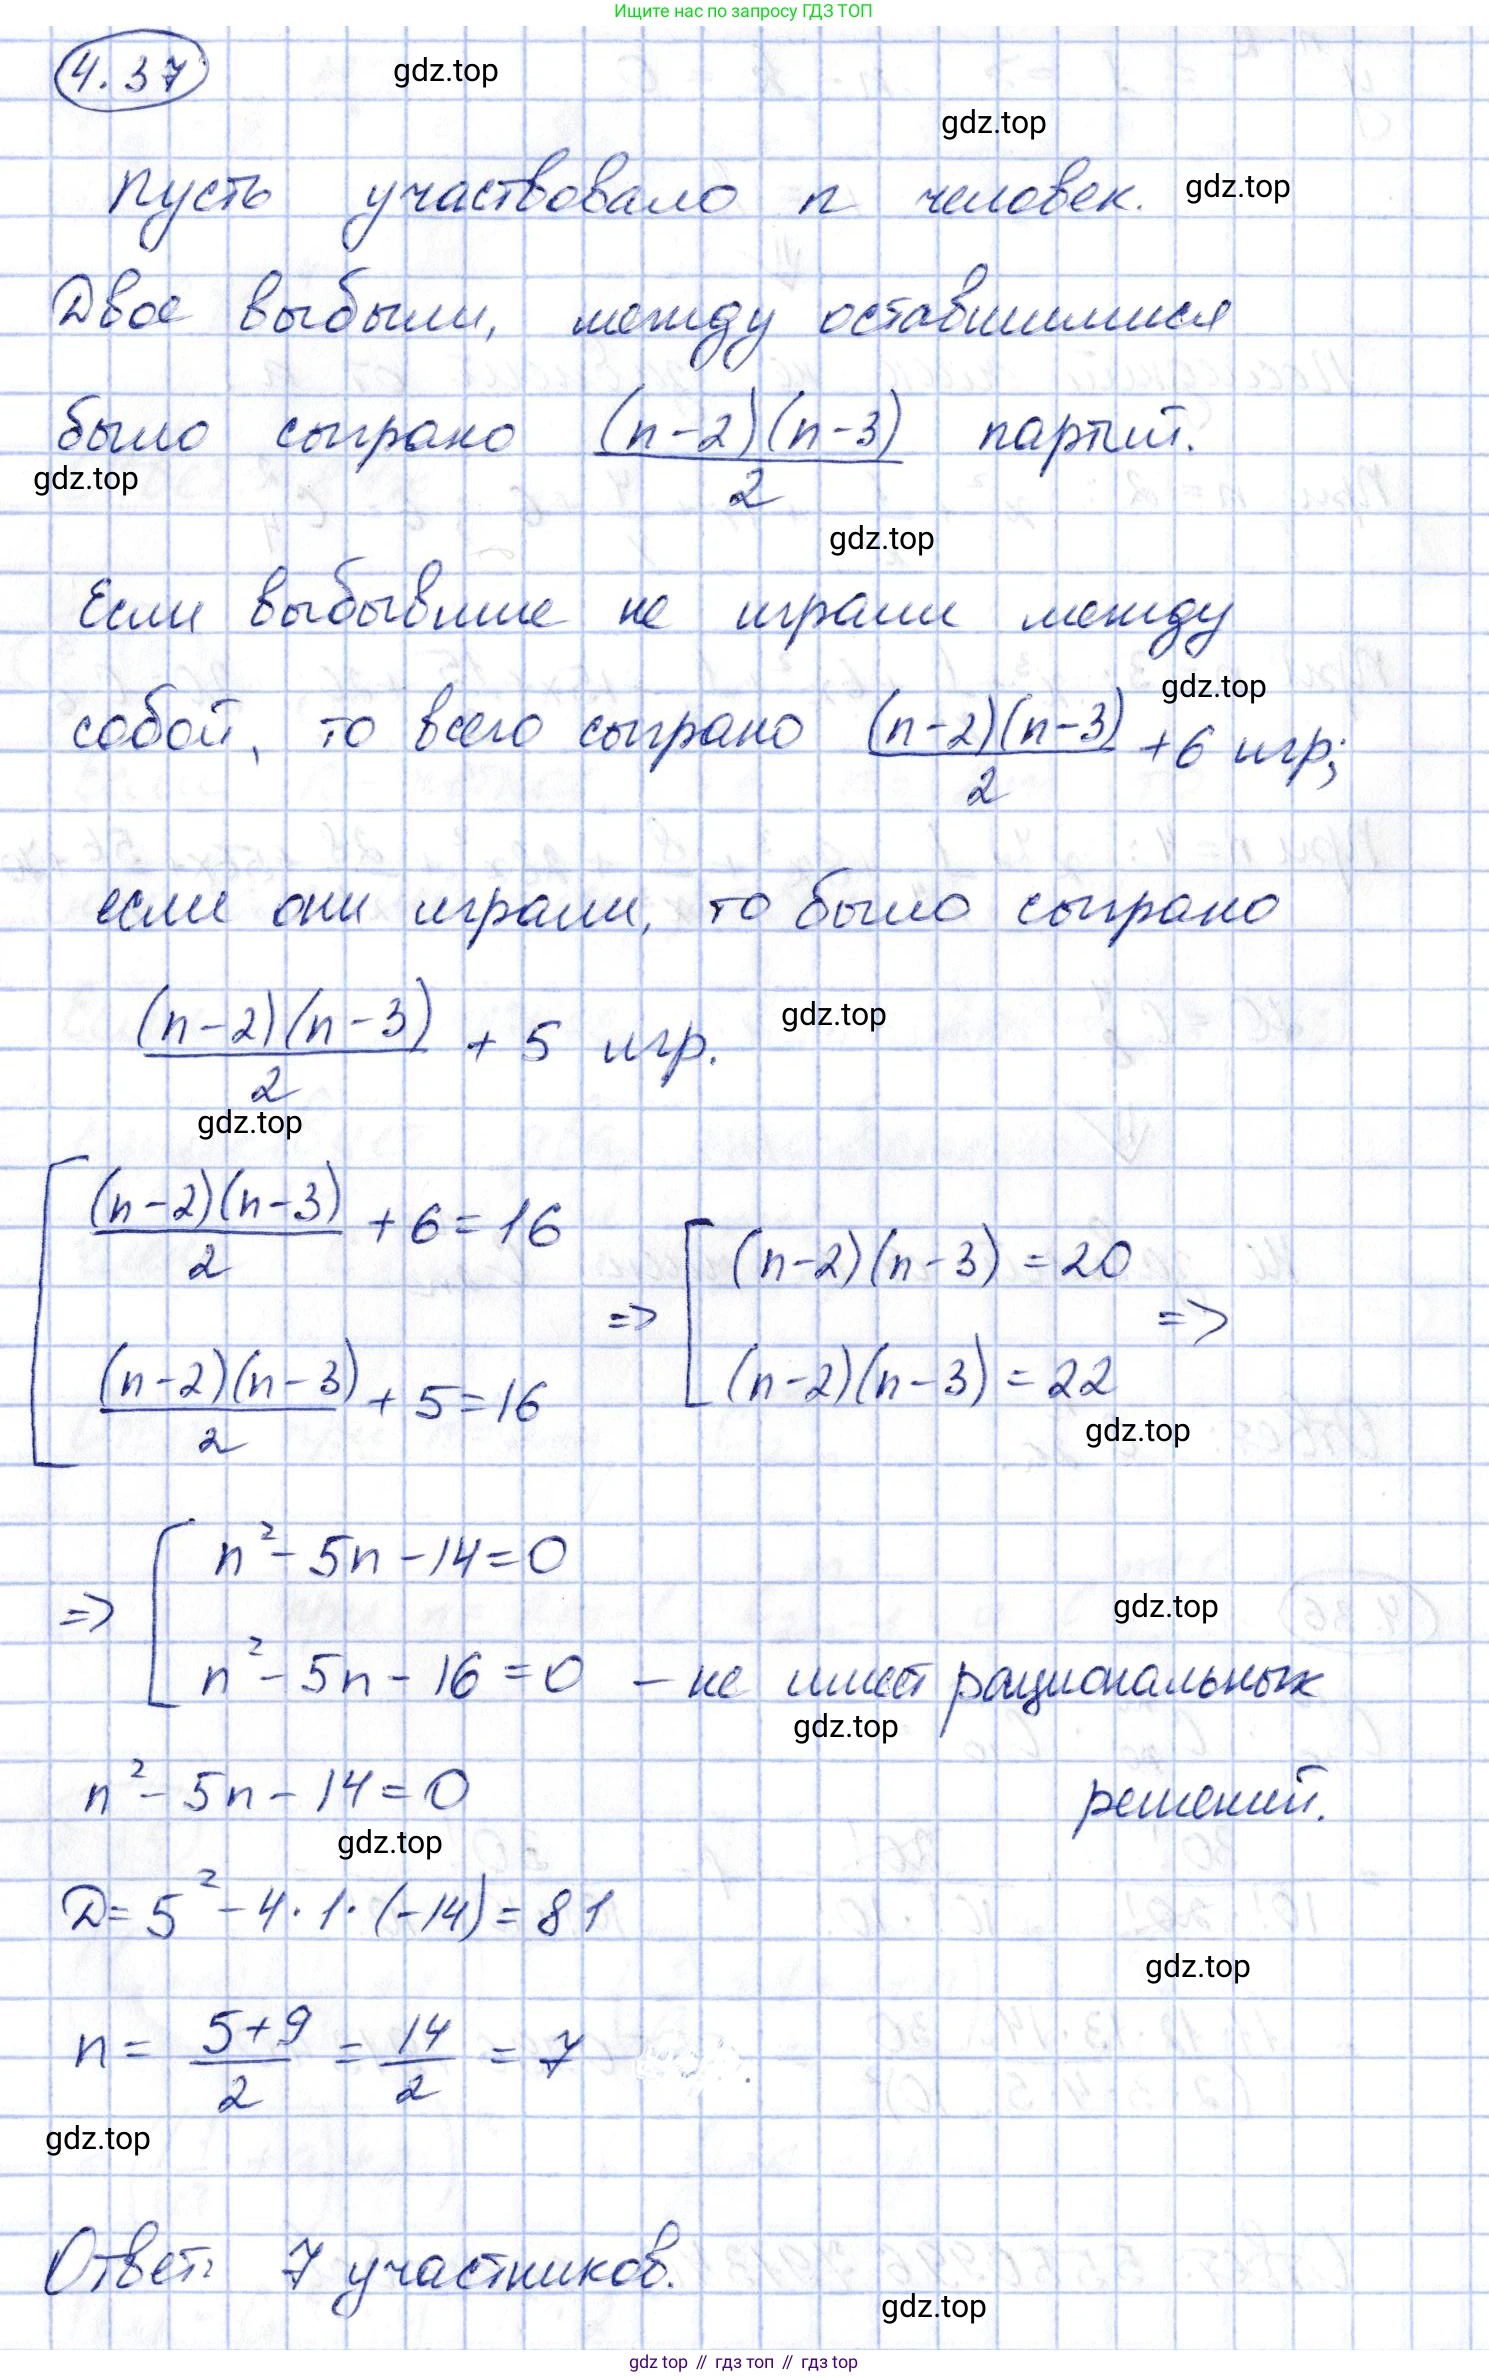 Ищите нас по запросу ГДЗ ТОП
4.37
gdz.top
gdz.top
Пусть участвовало n человек.
gdz.top
Двое выбыли, между оставшимися
было сыграно (n-2)(n-3)/2 партий.
gdz.top
gdz.top
Если выбывшие не играли между
gdz.top
собой, то всего сыграно (n-2)(n-3)/2 +6 игр;
если они играли, то было сыграно
(n-2)(n-3)/2 + 5 игр.
gdz.top
gdz.top
[ (n-2)(n-3)/2 + 6 = 16
(n-2)(n-3)/2 + 5 = 16
=> [ (n-2)(n-3) = 20
(n-2)(n-3) = 22 =>
gdz.top
=> [ n² - 5n - 14 = 0
gdz.top
n² - 5n - 16 = 0 – не имеет рациональных
gdz.top
решений.
n² - 5n - 14 = 0
gdz.top
D = 5² - 4·1·(-14) = 81
gdz.top
n = (5+9)/2 = 14/2 = 7
gdz.top
Ответ: 7 участников.
gdz.top
gdz top // гдз топ // гдз top